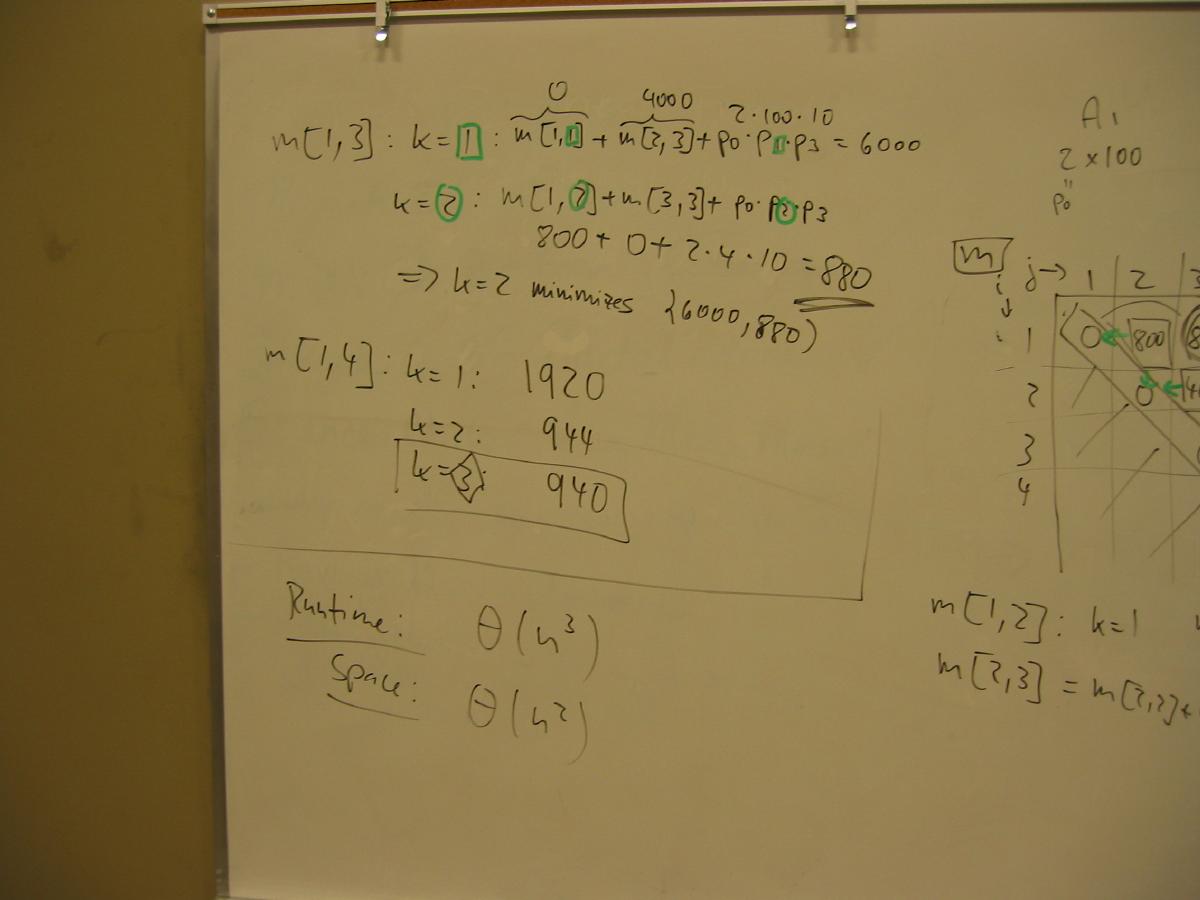 0 4000 2·100·10
m[1,3]: k=1: m[1,1] + m[2,3] + p0·p1·p3 = 6000
k=2: m[1,2] + m[3,3] + p0·p2·p3
800 + 0 + 2·4·10 = 880
=> k=2 minimizes {6000, 880}
m[1,4]: k=1: 1920
k=2: 944
k=3: 940
Runtime: θ(n³)
Space: θ(n²)
A1
2 x 100
"
p0
m j→ 1 2 3
i
↓
1 0 800
2 0
3
4
m[1,2]: k=1
m[2,3] = m[2,2]+